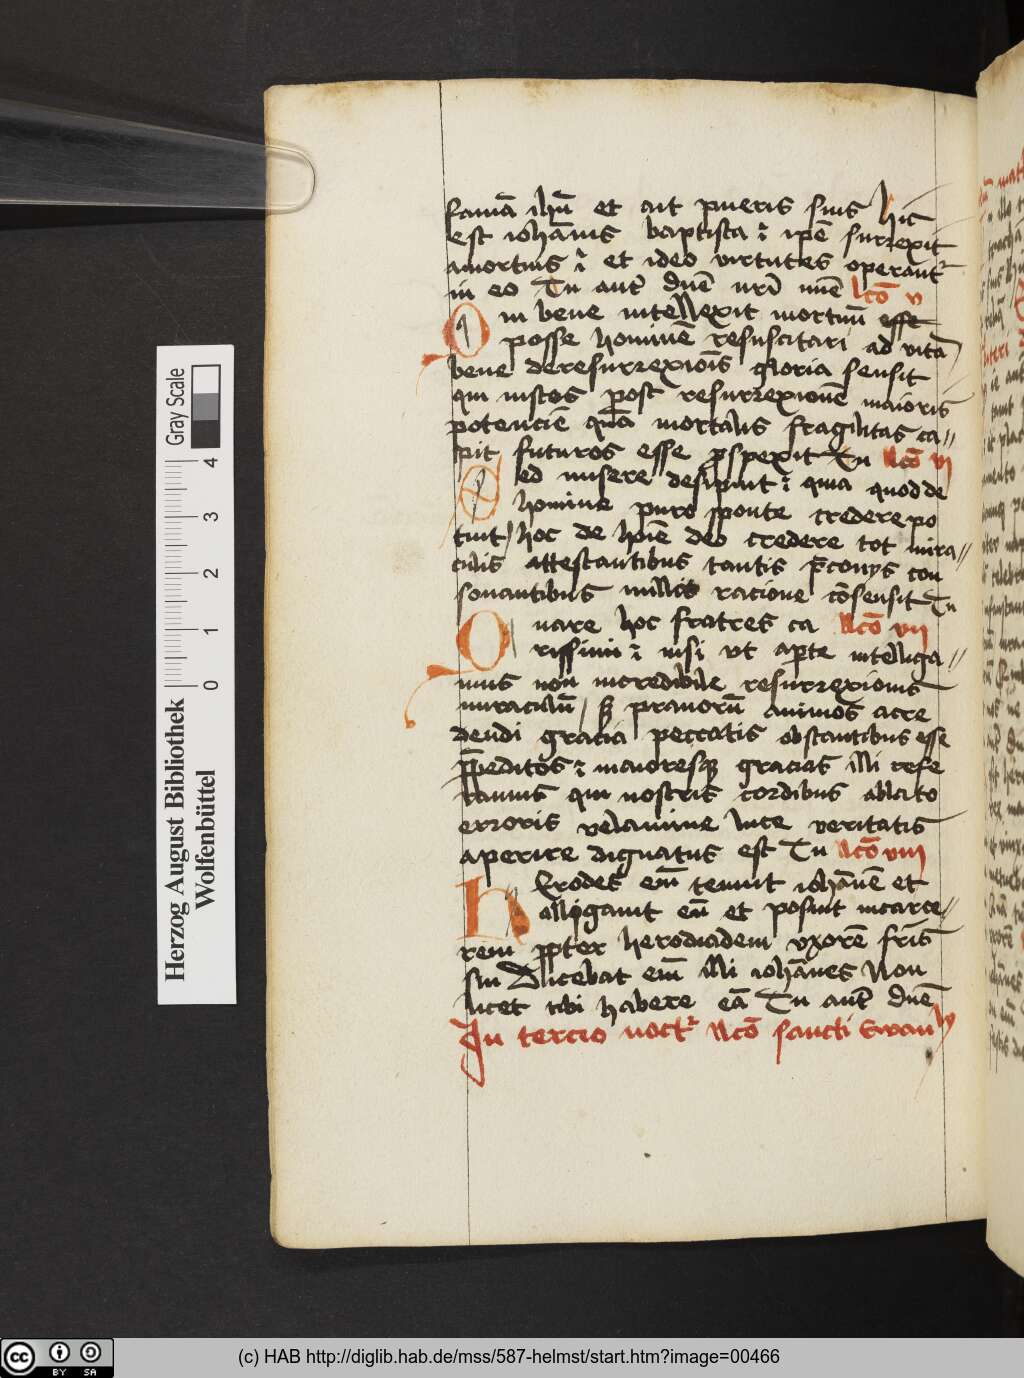 famā ihū et ait pueris suis hic
est iohānis baptista ⁊ ipē surrexit
amortuis ⁊ et ideo virtutes operant᷑
in eo Tu aut᷑ dn̄e nr̄i mīe lcō v
Q in bene intellexit mortuū esse
posse hominē resuscitari ad vitā
bene deresurrexiōis gloria sensit
qui iustos post resurrexionē maioris
potencie quā mortalis fragilitas ca〃
pit futuros esse prospexit Tu lcō vi
S ed misere desipiūt ⁊ quia quod de
homine puro sponte credere po
tuit hoc de hoīe deo credere tot mira〃
culis attestantibus tantis p̄conijs con
sonantibus nullis racione cōsensit Tu
Q uare hoc fratres ca lcō vii
rissimi ⁊ nisi vt aperte intelliga〃
mus non incredibile resurrexionis
miraculū / sꝫ prauorū animos acre
dendi gracia peccatis obstantibus esse
p̄peditos ⁊ maioresqꝫ gracias illi refe
ramus qui nostris cordibus ablato
erroris velamine luce veritatis
aperire dignatus est Tu lcō viii
h Erodes em̄ tenuit iohānē et
alligauit eū et posuit incarce〃
rem propter herodiadem vxorē fr̄is
sui Dicebat em̄ illi iohānes Non
licet tibi habere eā Tu aut᷑ dn̄e
In tercio noct᷑ lcō sancti Ewanly
Herzog August Bibliothek
Wolfenbüttel
Gray Scale
0 1 2 3 4
(c) HAB http://diglib.hab.de/mss/587-helmst/start.htm?image=00466
cc BY SA